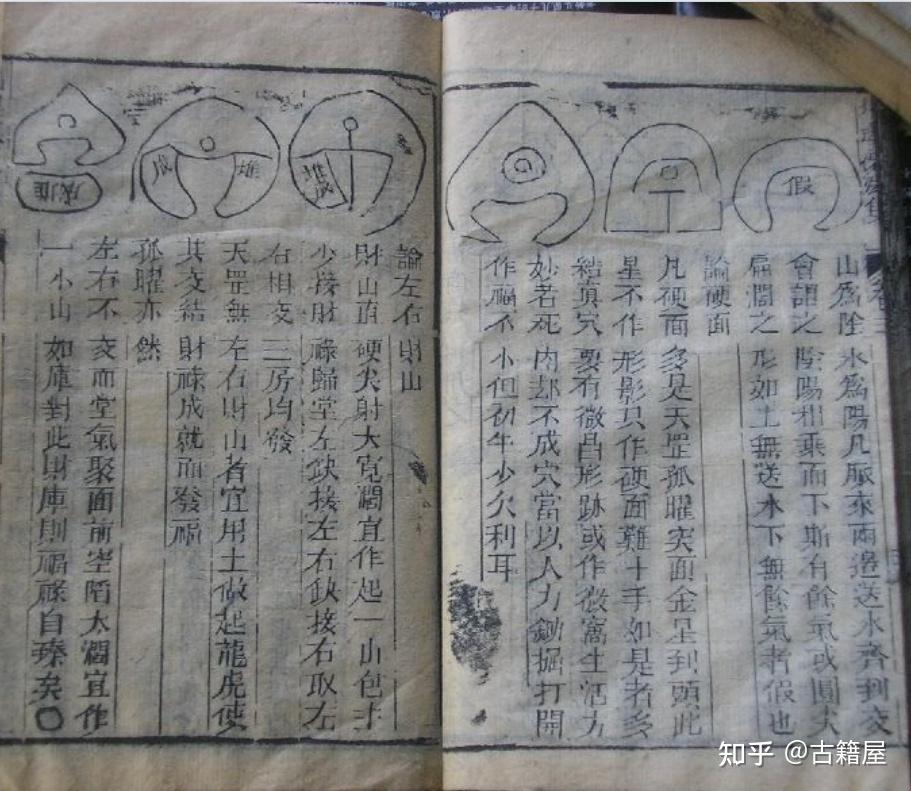 假
山爲陰水爲陽凡脈來兩邊送水齊到交
會謂之陰陽相乘而下斯有餘氣或圓或
扁濶之形如土無送水下無餘氣者假也
論硬面
凡硬面多是天罡孤曜突面金星到頭此
星不作形影只作硬面難于下手如是者多
結真穴要有微昌形跡或作微窩生活方
妙者死內却不成穴當以人力鋤掘打開
作福不小但初年少欠利耳
堆成
雄
成
成堆
論左右財山
財山直硬尖射大寬濶宜作起一山包主
少接財祿歸堂左缺接左右缺接右取左
右相交三房均發
天罡無左右財山者宜用土做起龍虎使
其交結財祿成就而發福
孤曜亦然
左右不交而堂氣聚面前空陷太濶宜作
一小山如庫對此財庫則福祿自臻矣○
知乎 @古籍屋